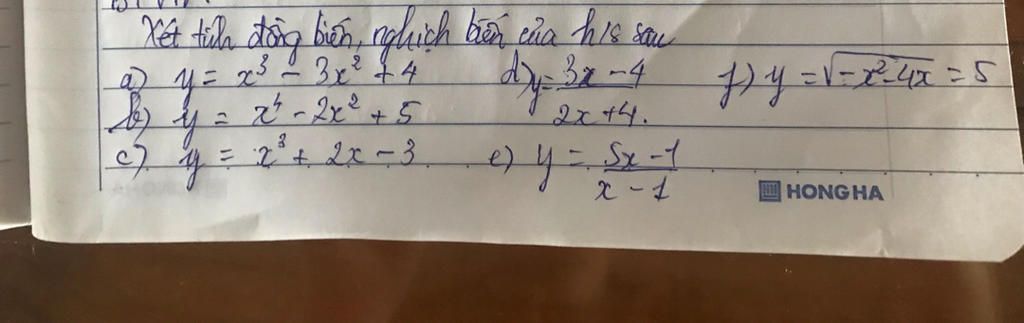 Xét tính đồng biến, nghịch biến của h/s sau
a) y = x³ - 3x² + 4 d) y = 3x - 4 / 2x + 4. f) y = √-x²-4x = 5
b) y = x⁴ - 2x² + 5
c) y = x³ + 2x - 3 e) y = 5x - 1 / x - 1
HONG HA